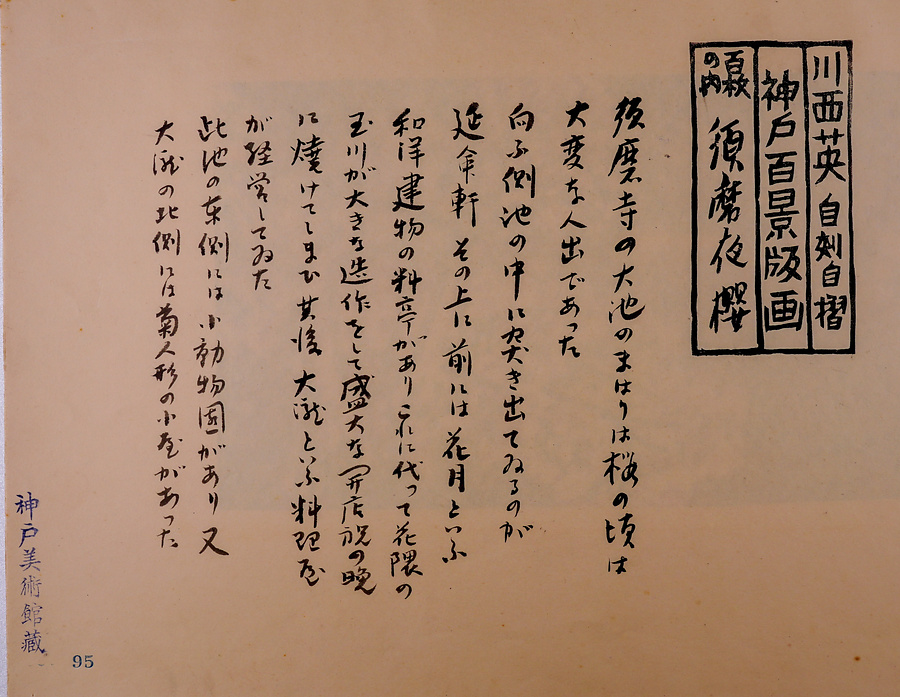 川西英 自刻自摺
神戸百景版画
百枚の内 須磨夜櫻
須磨寺の大池のまはりは桜の頃は
大変な人出であった
向ふ側池の中に突き出てゐるのが
延命軒 その上に前には花月といふ
和洋建物の料亭がありこれに代って花隈の
玉川が大きな造作をして盛大な開店祝の晩
に焼けてしまひ其後大瀧といふ料理屋
が経営してゐた
此池の東側には小動物園があり 又
大瀧の北側には菊人形の小屋があった
神戸美術館蔵
95